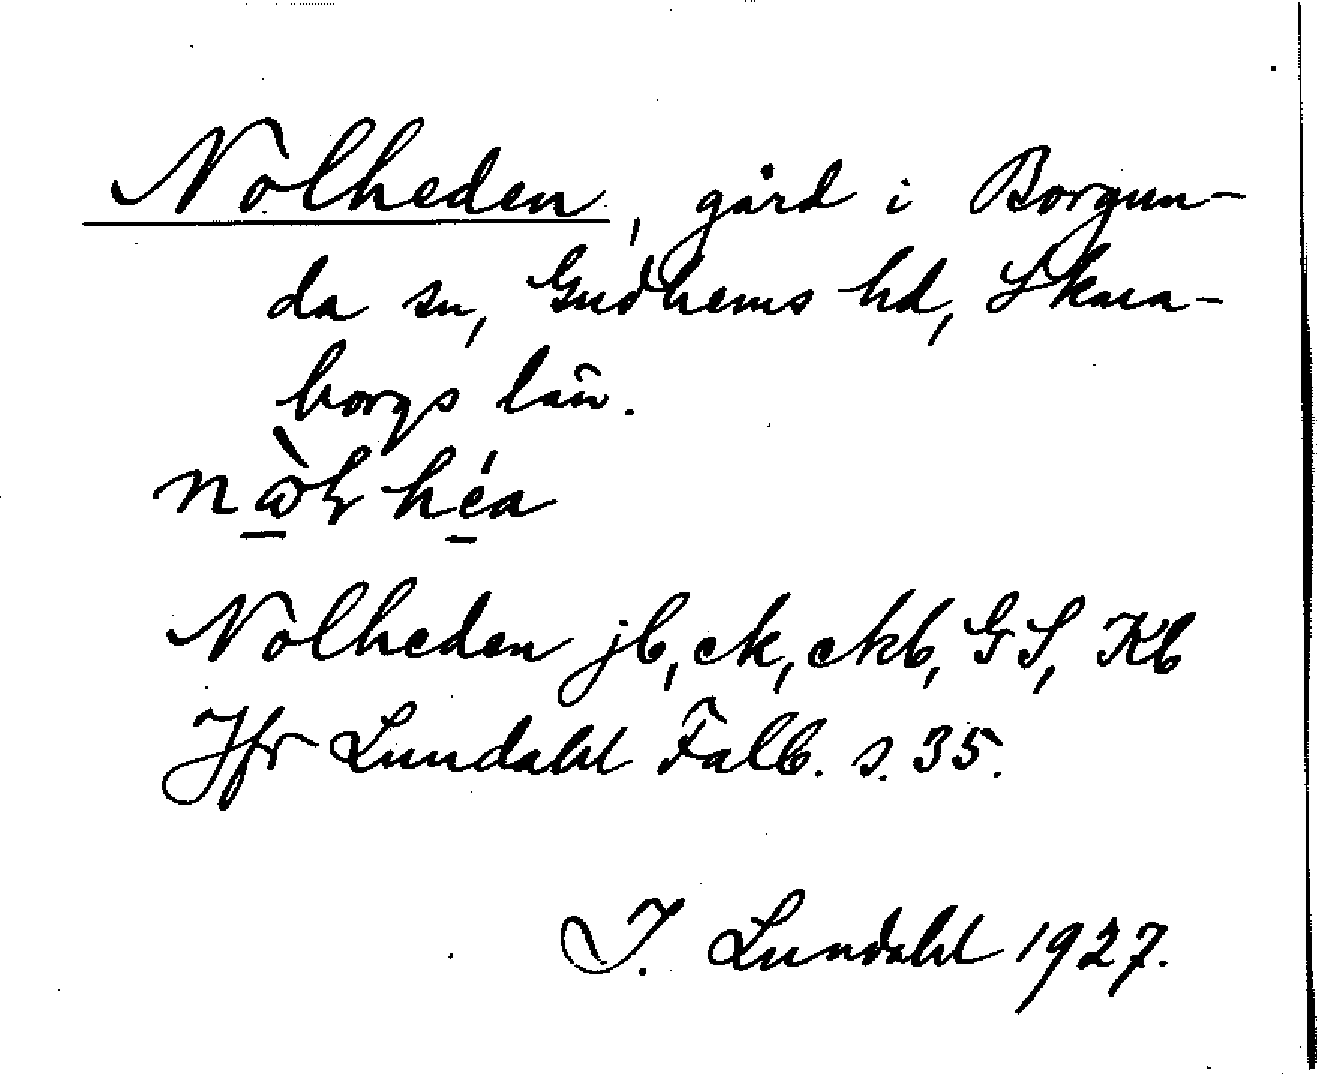 Nolheden, gård i Borgun-
da sn, Gudhems hd, Skara-
borgs län.
héa
Nolheden jb, ek, ekb, GS, Kb
Jfr Lundahl Falb. s. 35.
I. Lundahl 1927.